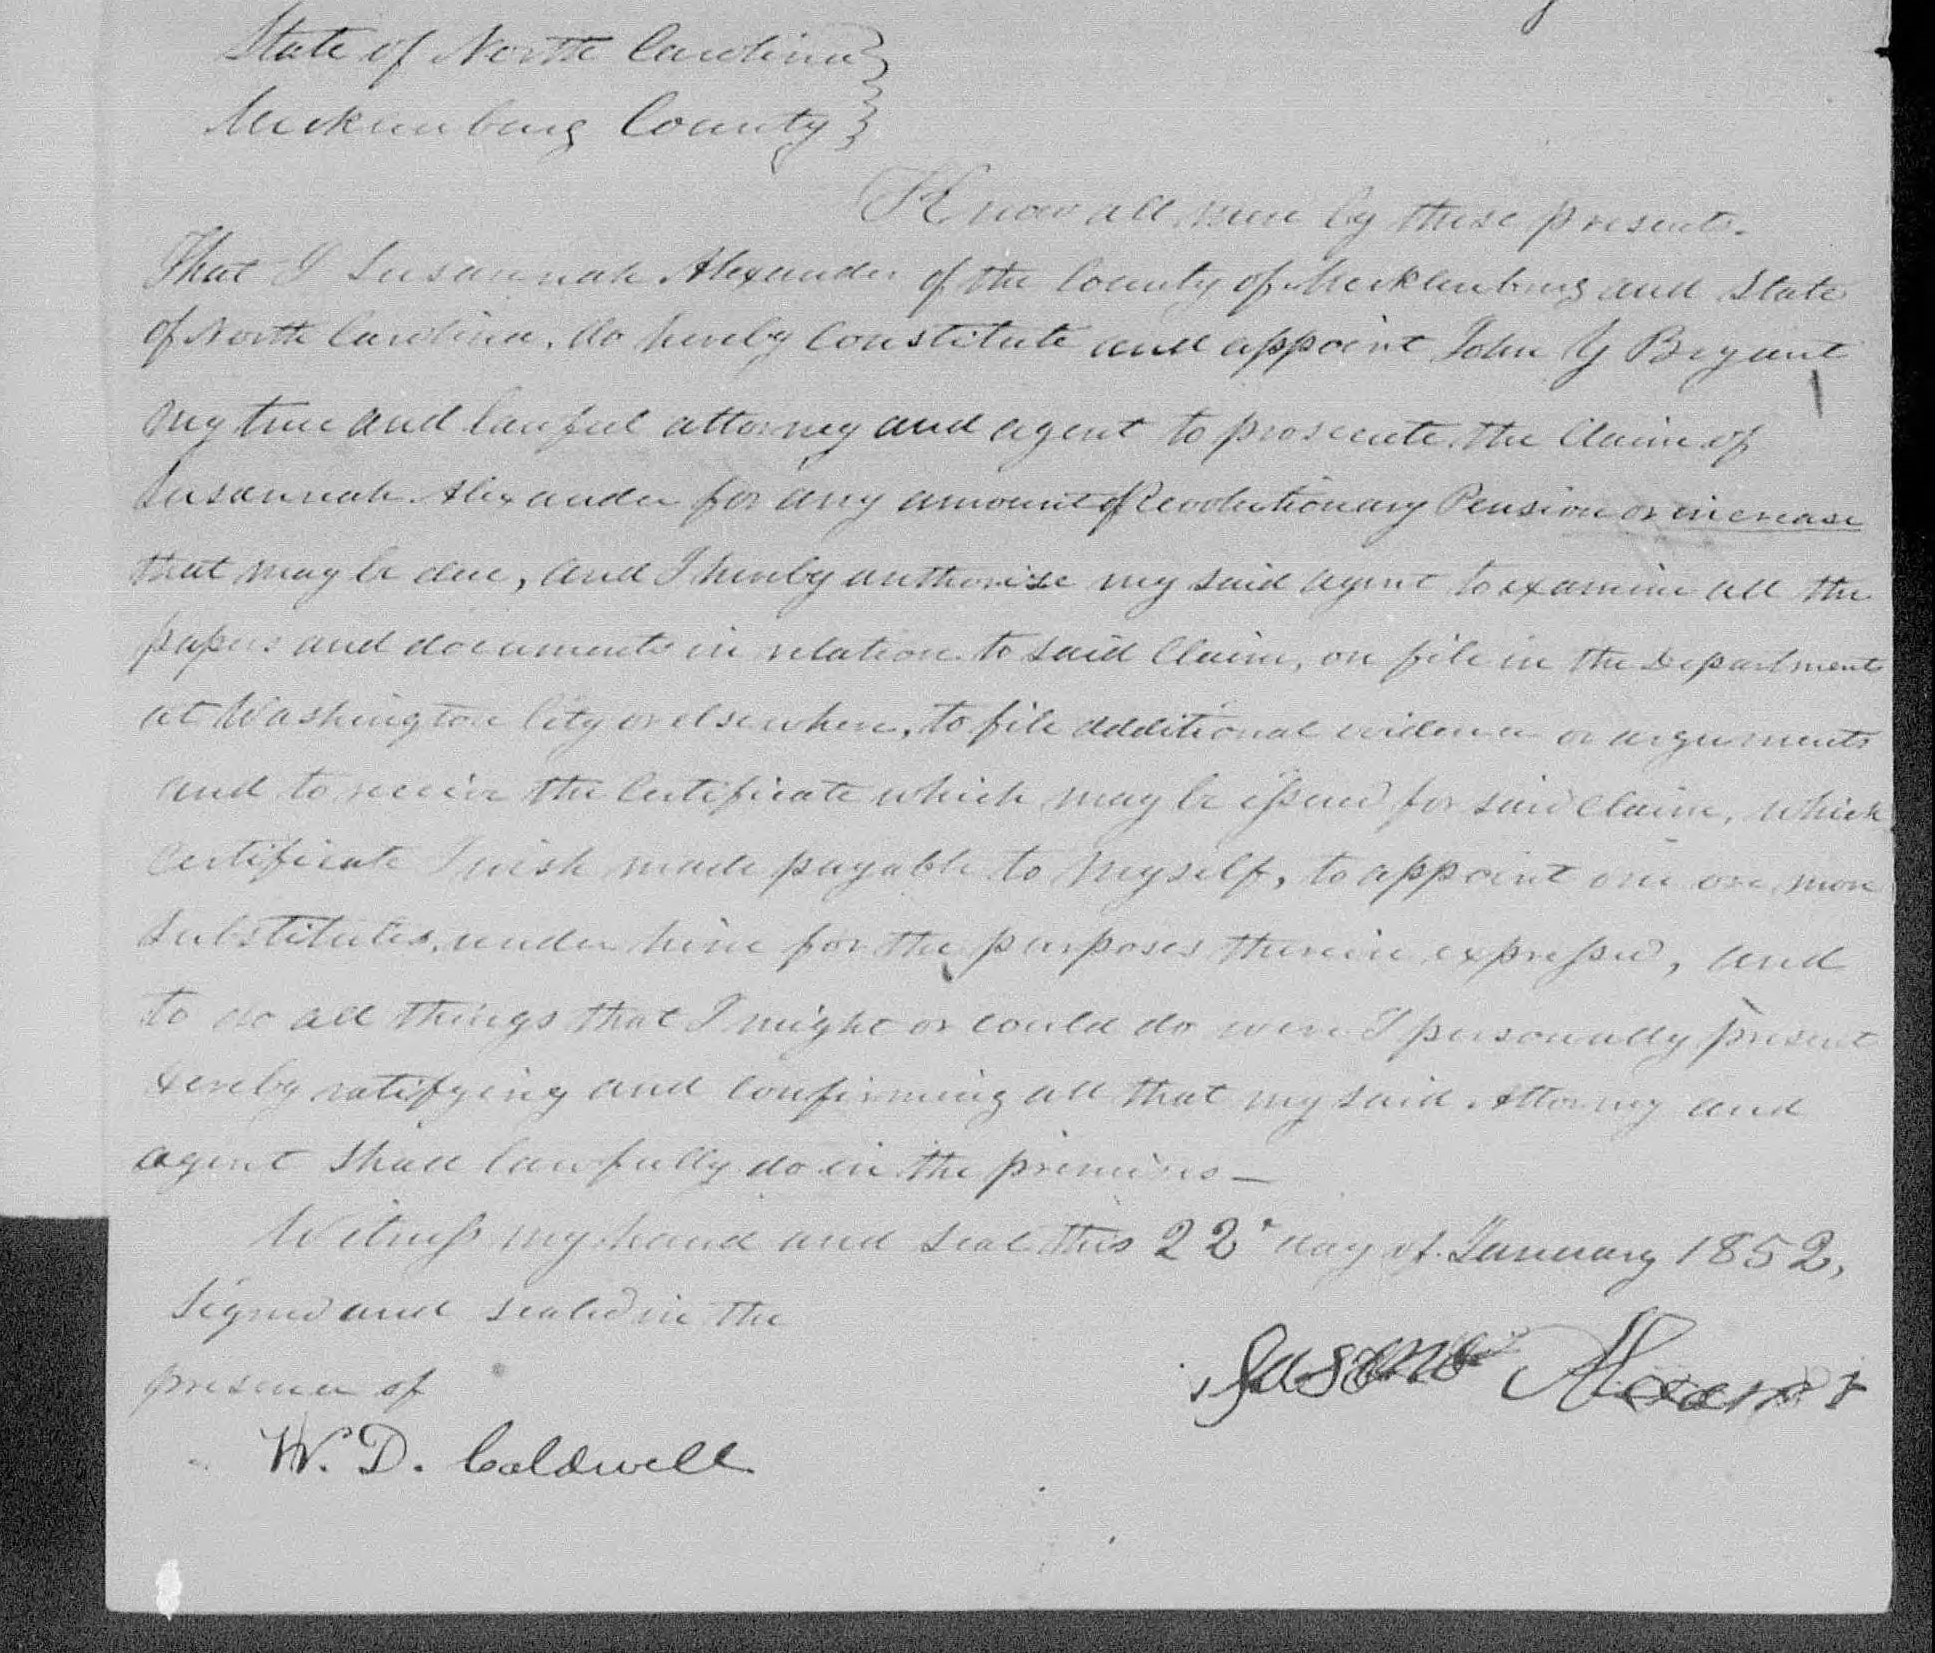 State of North Carolina }
Mecklenburg County }
Know all men by these presents.
That I Susannah Alexander of the County of Mecklenburg and State
of North Carolina, do hereby Constitute and appoint John Y Bryant
my true and lawful attorney and agent to prosecute the Claim of
Susannah Alexander for any amount of Revolutionary Pension or increase
that may be due, and I hereby authorise my said agent to examine all the
papers and documents in relation to said Claim, on file in the Department
at Washington City or elsewhere, to file additional evidence or arguments
and to receive the Certificate which may be issued for said Claim, which
Certificate I wish made payable to myself, to appoint one or more
substitutes, under him for the purposes therein expressed, and
to do all things that I might or could do were I personally present
hereby ratifying and confirming all that my said Attorney and
agent shall lawfully do in the premises —
Witness my hand and seal this 22d day of January 1852,
Signed and sealed in the
presence of
W. D. Caldwell